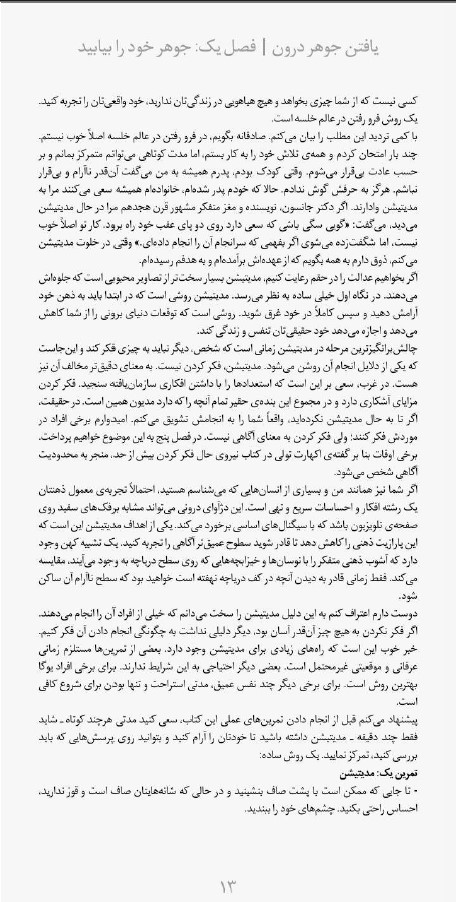 یافتن جوهر درون | فصل یک: جوهر خود را بیابید
کسی نیست که از شما چیزی بخواهد و هیچ هیاهویی در زندگی‌تان ندارید، خود واقعی‌تان را تجربه کنید.
یک روش فرو رفتن در عالم خلسه است.
با کمی تردید این مطلب را بیان می‌کنم. صادقانه بگویم، در فرو رفتن در عالم خلسه اصلاً خوب نیستم.
چند بار امتحان کردم و همه‌ی تلاش خود را به کار بستم، اما مدت کوتاهی می‌توانم متمرکز بمانم و بر
حسب عادت بی‌قرار می‌شوم. وقتی کودک بودم، پدرم همیشه به من می‌گفت آن‌قدر ناآرام و بی‌قرار
نباشم. هرگز به حرفش گوش ندادم. حالا که خودم پدر شده‌ام، خانواده‌ام همیشه سعی می‌کنند مرا به
مدیتیشن وادارند. اگر دکتر جانسون، نویسنده و مغز متفکر مشهور قرن هجدهم مرا در حال مدیتیشن
می‌دید، می‌گفت: «گویی سگی باشی که سعی دارد روی دو پای عقب خود راه برود. کار تو اصلاً خوب
نیست، اما شگفت‌زده می‌شوی اگر بفهمی که سرانجام آن را انجام داده‌ای.» وقتی در خلوت مدیتیشن
می‌کنم، ذوق دارم به همه بگویم که از عهده‌اش برآمده‌ام و به هدفم رسیده‌ام.
اگر بخواهیم عدالت را در حقم رعایت کنیم، مدیتیشن بسیار سخت‌تر از تصاویر محبوبی است که جلوه‌اش
می‌دهند. در نگاه اول خیلی ساده به نظر می‌رسد. مدیتیشن روشی است که در ابتدا باید به ذهن خود
آرامش دهید و سپس کاملاً در خود غرق شوید. روشی است که توقعات دنیای برونی را از شما کاهش
می‌دهد و اجازه می‌دهد خود حقیقی‌تان تنفس و زندگی کند.
چالش‌برانگیزترین مرحله در مدیتیشن زمانی است که شخص، دیگر نباید به چیزی فکر کند و این‌جاست
که یکی از دلایل انجام آن روشن می‌شود. مدیتیشن، فکر کردن نیست. به معنای دقیق‌تر مخالف آن نیز
هست. در غرب، سعی بر این است که استعدادها را با داشتن افکاری سازمان‌یافته سنجید. فکر کردن
مزایای آشکاری دارد و در مجموع این بنده‌ی حقیر تمام آنچه را که دارد مدیون همین است. در حقیقت،
اگر تا به حال مدیتیشن نکرده‌اید، واقعاً شما را به انجامش تشویق می‌کنم. امیدوارم برخی افراد در
موردش فکر کنند؛ ولی فکر کردن به معنای آگاهی نیست. در فصل پنج به این موضوع خواهیم پرداخت.
برخی اوقات بنا بر گفته‌ی اکهارت تولی در کتاب نیروی حال فکر کردن بیش از حد، منجر به محدودیت
آگاهی شخص می‌شود.
اگر شما نیز همانند من و بسیاری از انسان‌هایی که می‌شناسم هستید، احتمالاً تجربه‌ی معمول ذهنتان
یک رشته افکار و احساسات سریع و تهی است. این دژآوای درونی می‌تواند مشابه برفک‌های سفید روی
صفحه‌ی تلویزیون باشد که با سیگنال‌های اساسی برخورد می‌کند. یکی از اهداف مدیتیشن این است که
این پارازیت ذهنی را کاهش دهد تا قادر شوید سطوح عمیق‌تر آگاهی را تجربه کنید. یک تشبیه کهن وجود
دارد که آشوب ذهنی متفکر را با نوسان‌ها و خیزابچه‌هایی که روی سطح دریاچه به وجود می‌آیند، مقایسه
می‌کند. فقط زمانی قادر به دیدن آنچه در کف دریاچه نهفته است خواهید بود که سطح ناآرام آن ساکن
شود.
دوست دارم اعتراف کنم به این دلیل مدیتیشن را سخت می‌دانم که خیلی از افراد آن را انجام می‌دهند.
اگر فکر نکردن به هیچ چیز آن‌قدر آسان بود، دیگر دلیلی نداشت به چگونگی انجام دادن آن فکر کنیم.
خبر خوب این است که راه‌های زیادی برای مدیتیشن وجود دارد. بعضی از تمرین‌ها مستلزم زمانی
عرفانی و موقعیتی غیرمحتمل است. بعضی دیگر احتیاجی به این شرایط ندارند. برای برخی افراد یوگا
بهترین روش است. برای برخی دیگر چند نفس عمیق، مدتی استراحت و تنها بودن برای شروع کافی
است.
پیشنهاد می‌کنم قبل از انجام دادن تمرین‌های عملی این کتاب، سعی کنید مدتی هرچند کوتاه ـ شاید
فقط چند دقیقه ـ مدیتیشن داشته باشید تا خودتان را آرام کنید و بتوانید روی پرسش‌هایی که باید
بررسی کنید، تمرکز نمایید. یک روش ساده:
تمرین یک: مدیتیشن
- تا جایی که ممکن است با پشت صاف بنشینید و در حالی که شانه‌هایتان صاف است و قوز ندارید،
احساس راحتی بکنید. چشم‌های خود را ببندید.
۱۳